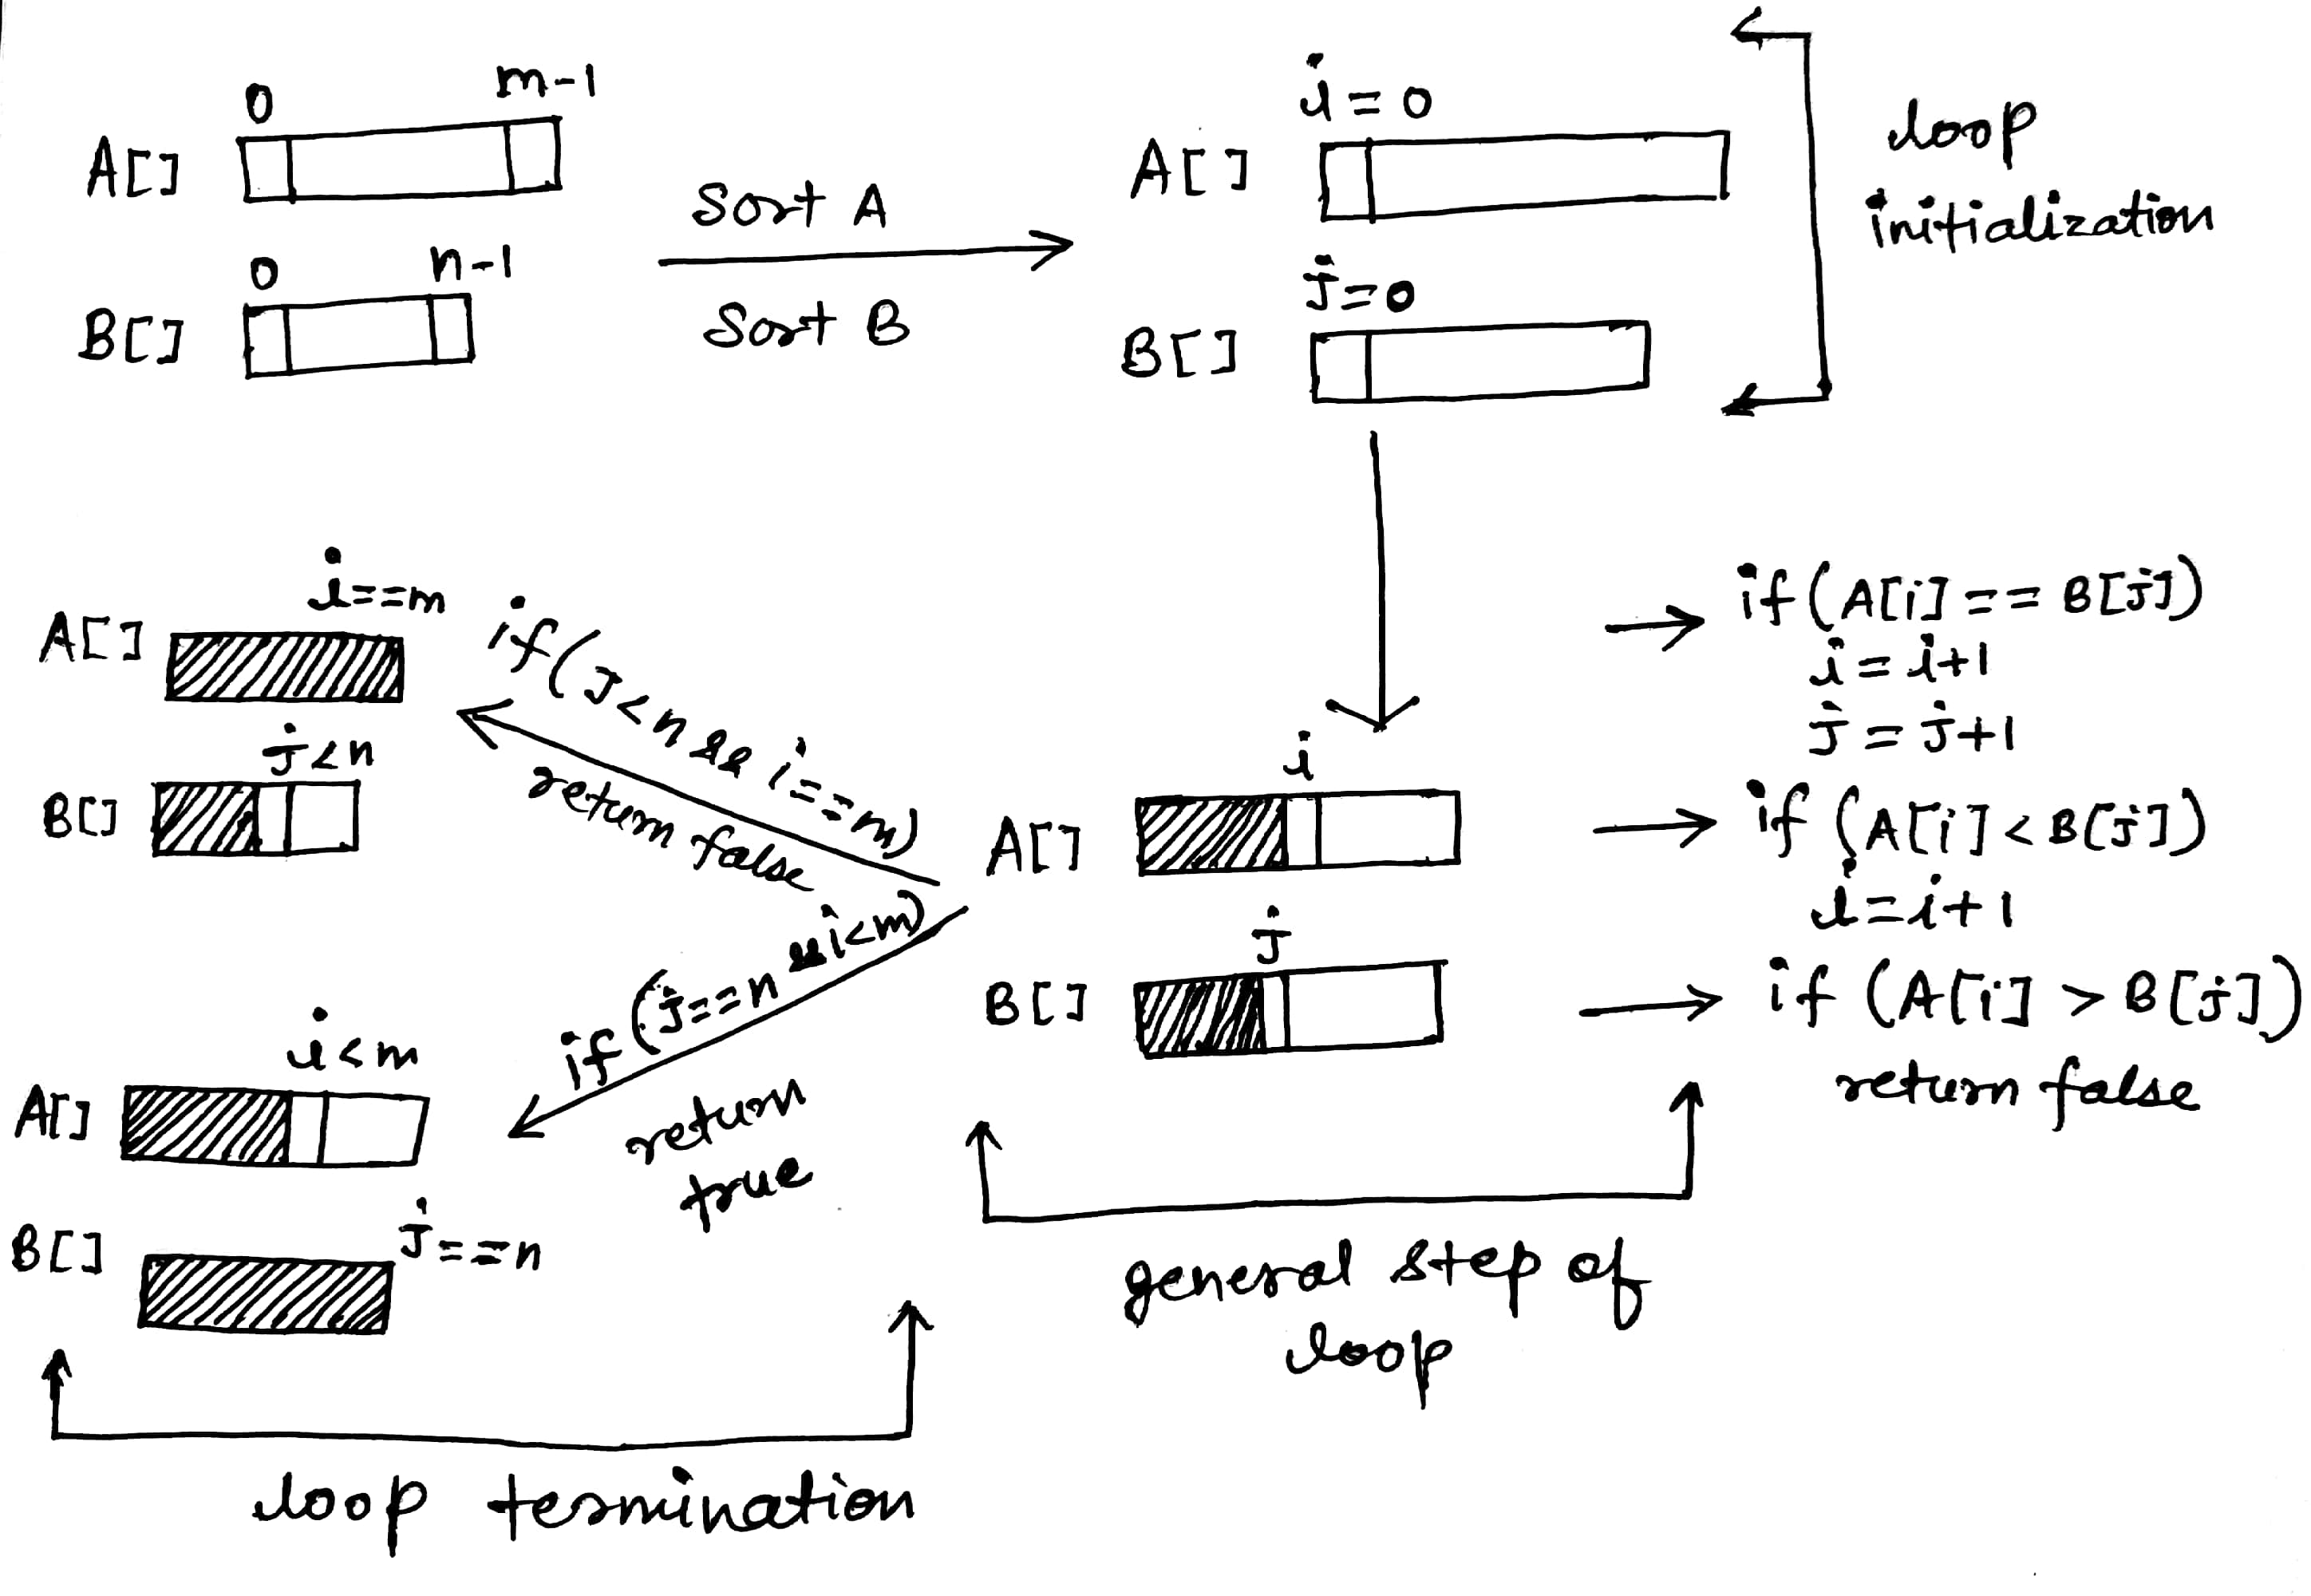 0
m-1
A[]
0
n-1
B[]
Sort A
Sort B
i=0
A[]
j=0
B[]
loop
initialization
i==m
A[]
j<n
B[]
if(j<n && i==m)
return false
if(j==n && i<m)
return
true
i<m
A[]
j==n
B[]
loop termination
i
A[]
j
B[]
if(A[i]==B[j])
i=i+1
j=j+1
if(A[i]<B[j])
i=i+1
if(A[i]>B[j])
return false
general step of
loop